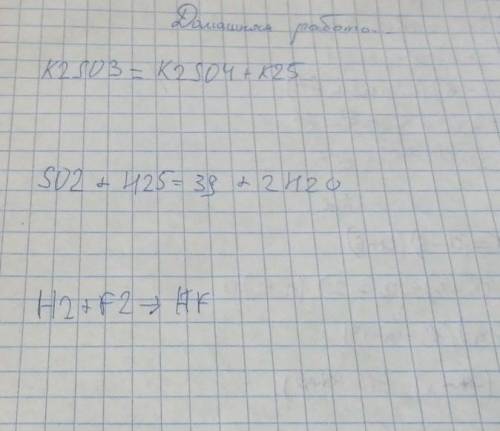 Домашняя работа..
K2SO3 = K2SO4 + K2S
SO2 + H2S = 3S + 2H2O
H2 + F2 → HF